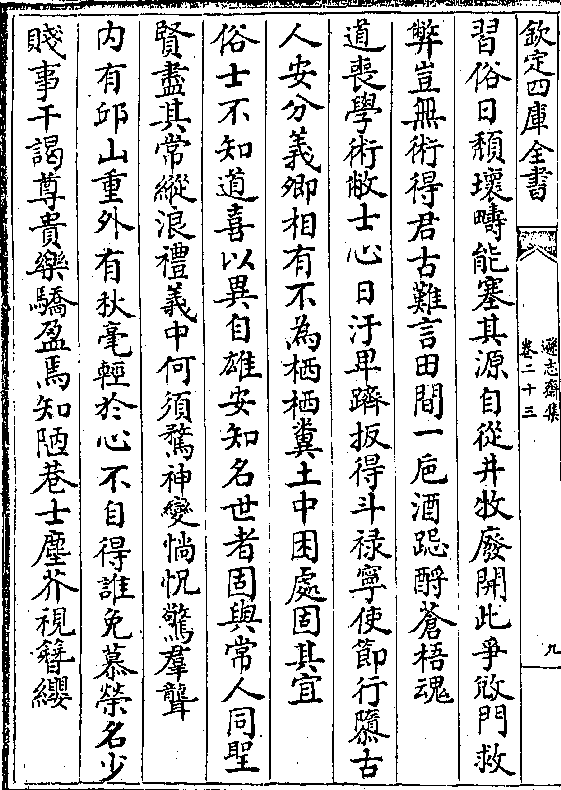 欽定四庫全書
遜志齋集
卷二十三
九
習俗日頽壞疇能塞其源自從井牧廢開此爭敓門救
弊豈無術得君古難言田間一巵酒跽酹蒼梧魂
道喪學術敝士心日汙卑躋扳得斗禄寧使節行隳古
人安分義卿相有不為栖栖糞土中困處固其宜
俗士不知道喜以異自雄安知名世者固與常人同聖
賢盡其常縱浪禮義中何須騖神變惝怳驚羣聾
内有邱山重外有秋毫輕於心不自得誰免慕榮名少
賤事干謁尊貴樂驕盈焉知陋巷士塵芥視簪纓